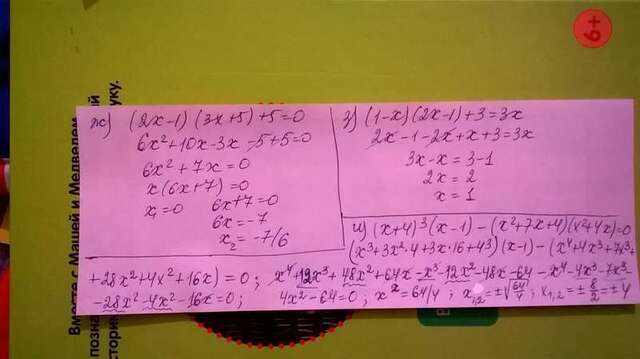 6+
Вместе с Машей и Медведем
ж) (2x-1)(3x+5)+5=0
6x²+10x-3x-5+5=0
6x²+7x=0
x(6x+7)=0
x₁=0 6x+7=0
6x=-7
x₂=-7/6
з) (1-x)(2x-1)+3=3x
2x-1-2x+x+3=3x
3x-x=3-1
2x=2
x=1
и) (x+4)³(x-1)-(x²+7x+4)(x²+4x)=0
(x³+3x²·4+3x·16+4³)(x-1)-(x⁴+4x³+7x³+
+28x²+4x²+16x)=0; x⁴+12x³+48x²+64x-x³-12x²-48x-64-x⁴-4x³-7x³-
-28x²-4x²-16x=0; 4x²-64=0; x²=64/4; x₁,₂=±√64/4; x₁,₂=±8/2=±4